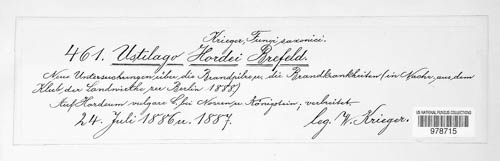 Krieger, Fungi saxonici.
461. Ustilago Hordei Brefeld.
Neue Untersuchungen über die Brandpilze u. die Brandkrankheiten (in Nachr. aus dem
Klub der Landwirthe zu Berlin 1888)
Auf Hordeum vulgare L. bei Königstein, verbreitet.
24. Juli 1886 u. 1887.
leg. W. Krieger.
US NATIONAL FUNGUS COLLECTIONS
978715